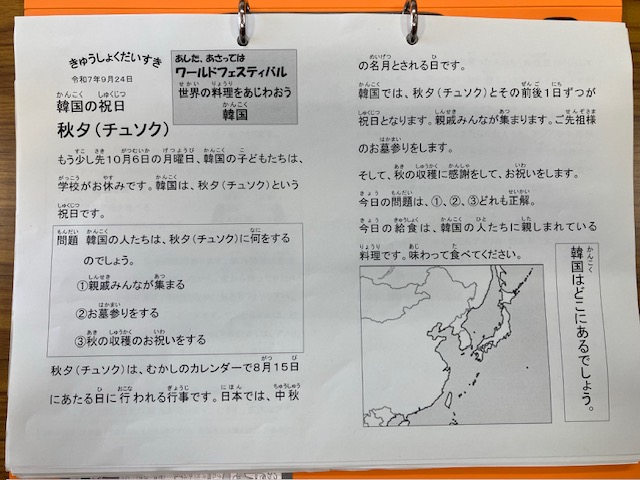 きゅうしょくだいすき
令和7年9月24日
韓国の祝日
秋夕(チュソク)
あした、あさっては
ワールドフェスティバル
世界の料理をあじわおう
韓国
もう少し先10月6日の月曜日、韓国の子どもたちは、
学校がお休みです。韓国は、秋夕(チュソク)という
祝日です。
問題 韓国の人たちは、秋夕(チュソク)に何をする
のでしょう。
①親戚みんなが集まる
②お墓参りをする
③秋の収穫のお祝いをする
秋夕(チュソク)は、むかしのカレンダーで8月15日
にあたる日に行われる行事です。日本では、中秋
の名月とされる日です。
韓国では、秋夕(チュソク)とその前後1日ずつが
祝日となります。親戚みんなが集まります。ご先祖様
のお墓参りをします。
そして、秋の収穫に感謝をして、お祝いをします。
今日の問題は、①、②、③どれも正解。
今日の給食は、韓国の人たちに親しまれている
料理です。味わって食べてください。
韓国はどこにあるでしょう。